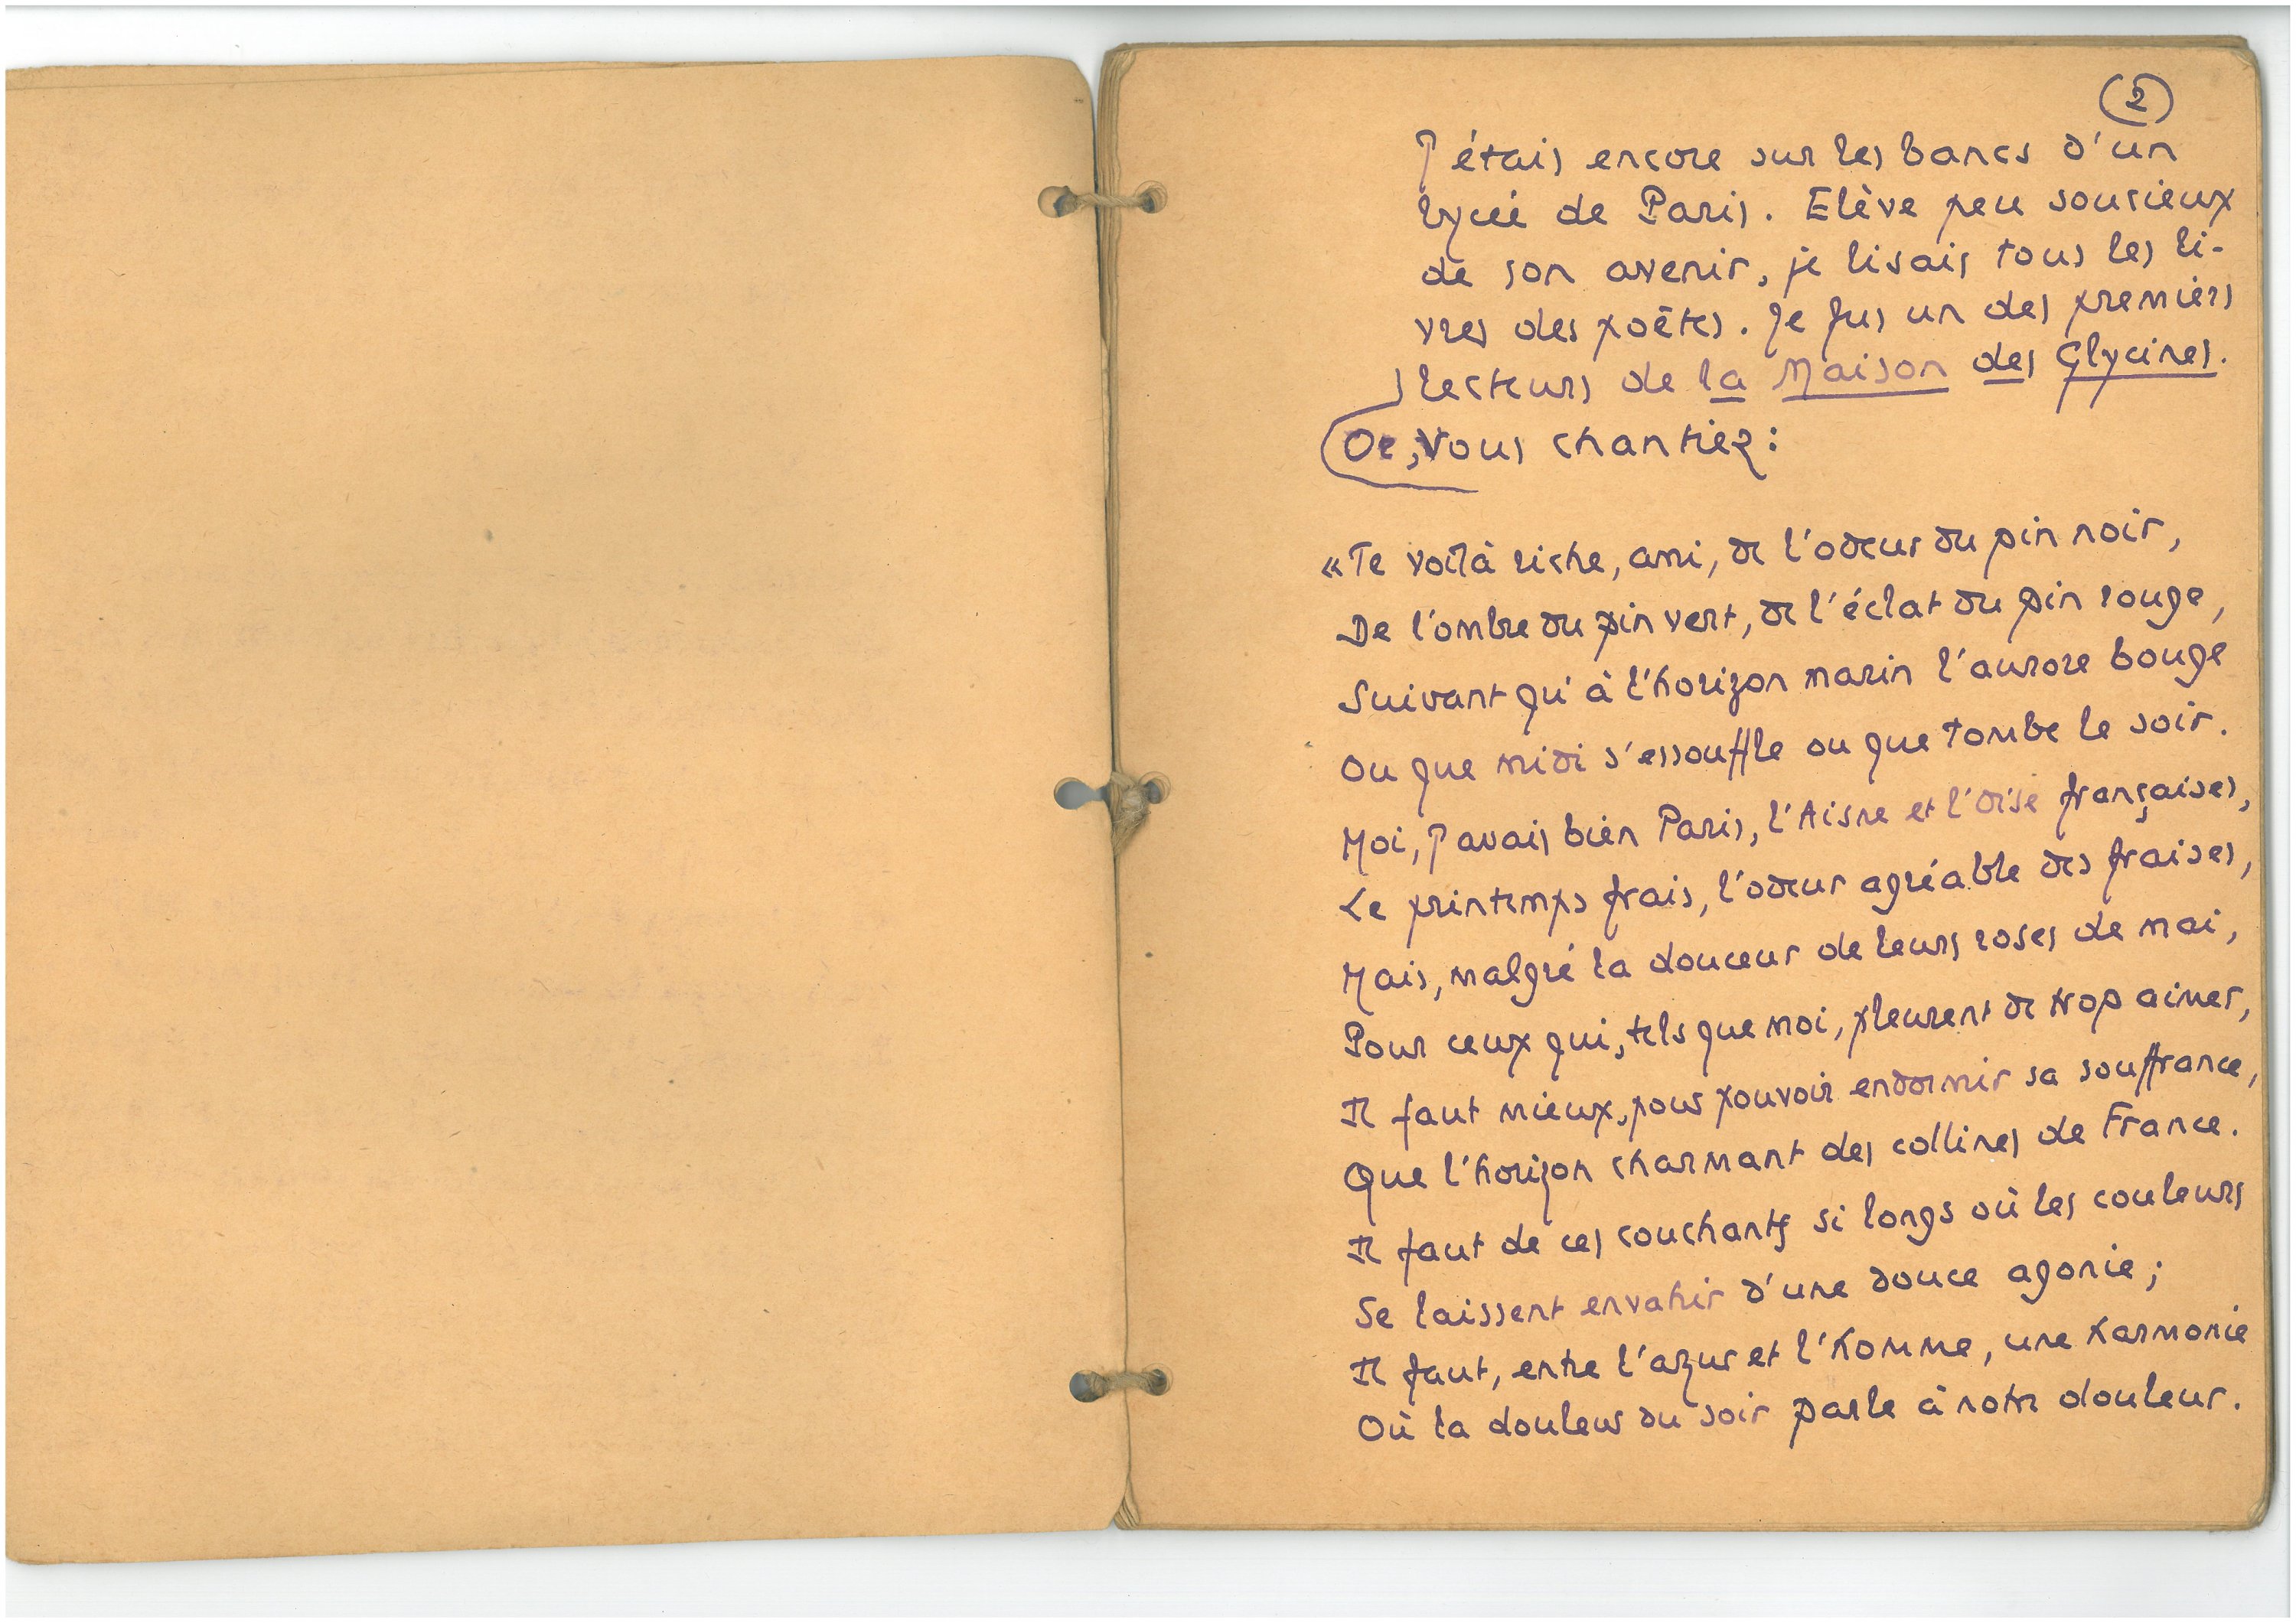 2
J'étais encore sur les bancs d'un
lycée de Paris. Elève peu soucieux
de son avenir, je lisais tous les li-
vres des poètes. Je fus un des premiers
lecteurs de la Maison des Glycines.
Or, vous chantiez:
«Te voilà riche, ami, de l'odeur du pin noir,
De l'ombre du pin vert, de l'éclat du pin rouge,
Suivant qu'à l'horizon marin l'aurore bouge
Ou que midi s'essouffle ou que tombe le soir.
Moi, j'avais bien Paris, l'Aisne et l'Oise françaises,
Le printemps frais, l'odeur agréable des fraises,
Mais, malgré la douceur de leurs roses de mai,
Pour ceux qui, tels que moi, pleurent de trop aimer,
Il faut mieux, pour pouvoir endormir sa souffrance,
Que l'horizon charmant des collines de France.
Il faut de ces couchants si longs où les couleurs
Se laissent envahir d'une douce agonie;
Il faut, entre l'azur et l'homme, une harmonie
Où la douleur du soir parle à notre douleur.